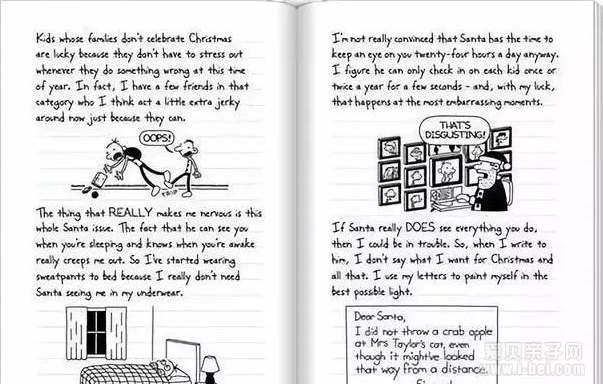 Kids whose families don't celebrate Christmas
are lucky because they don't have to stress out
whenever they do something wrong at this time
of year. In fact, I have a few friends in that
category who I think act a little extra jerky
around now just because they can.
OOPS!
TRIP
The thing that REALLY makes me nervous is this
whole Santa issue. The fact that he can see you
when you're sleeping and knows when you're awake
really creeps me out. So I've started wearing
sweatpants to bed because I really don't need
Santa seeing me in my underwear.
I'm not really convinced that Santa has the time to
keep an eye on you twenty-four hours a day anyway.
I figure he can only check in on each kid once or
twice a year for a few seconds - and, with my luck,
that happens at the most embarrassing moments.
THAT'S
DISGUSTING!
If Santa really DOES see everything you do,
then I could be in trouble. So, when I write to
him, I don't say what I want for Christmas and
all that. I use my letters to paint myself in the
best possible light.
Dear Santa,
I did not throw a crab apple
at Mrs Taylor's cat, even
though it might've looked
that way from a distance.
爱贝亲子网
www.i-bei.com